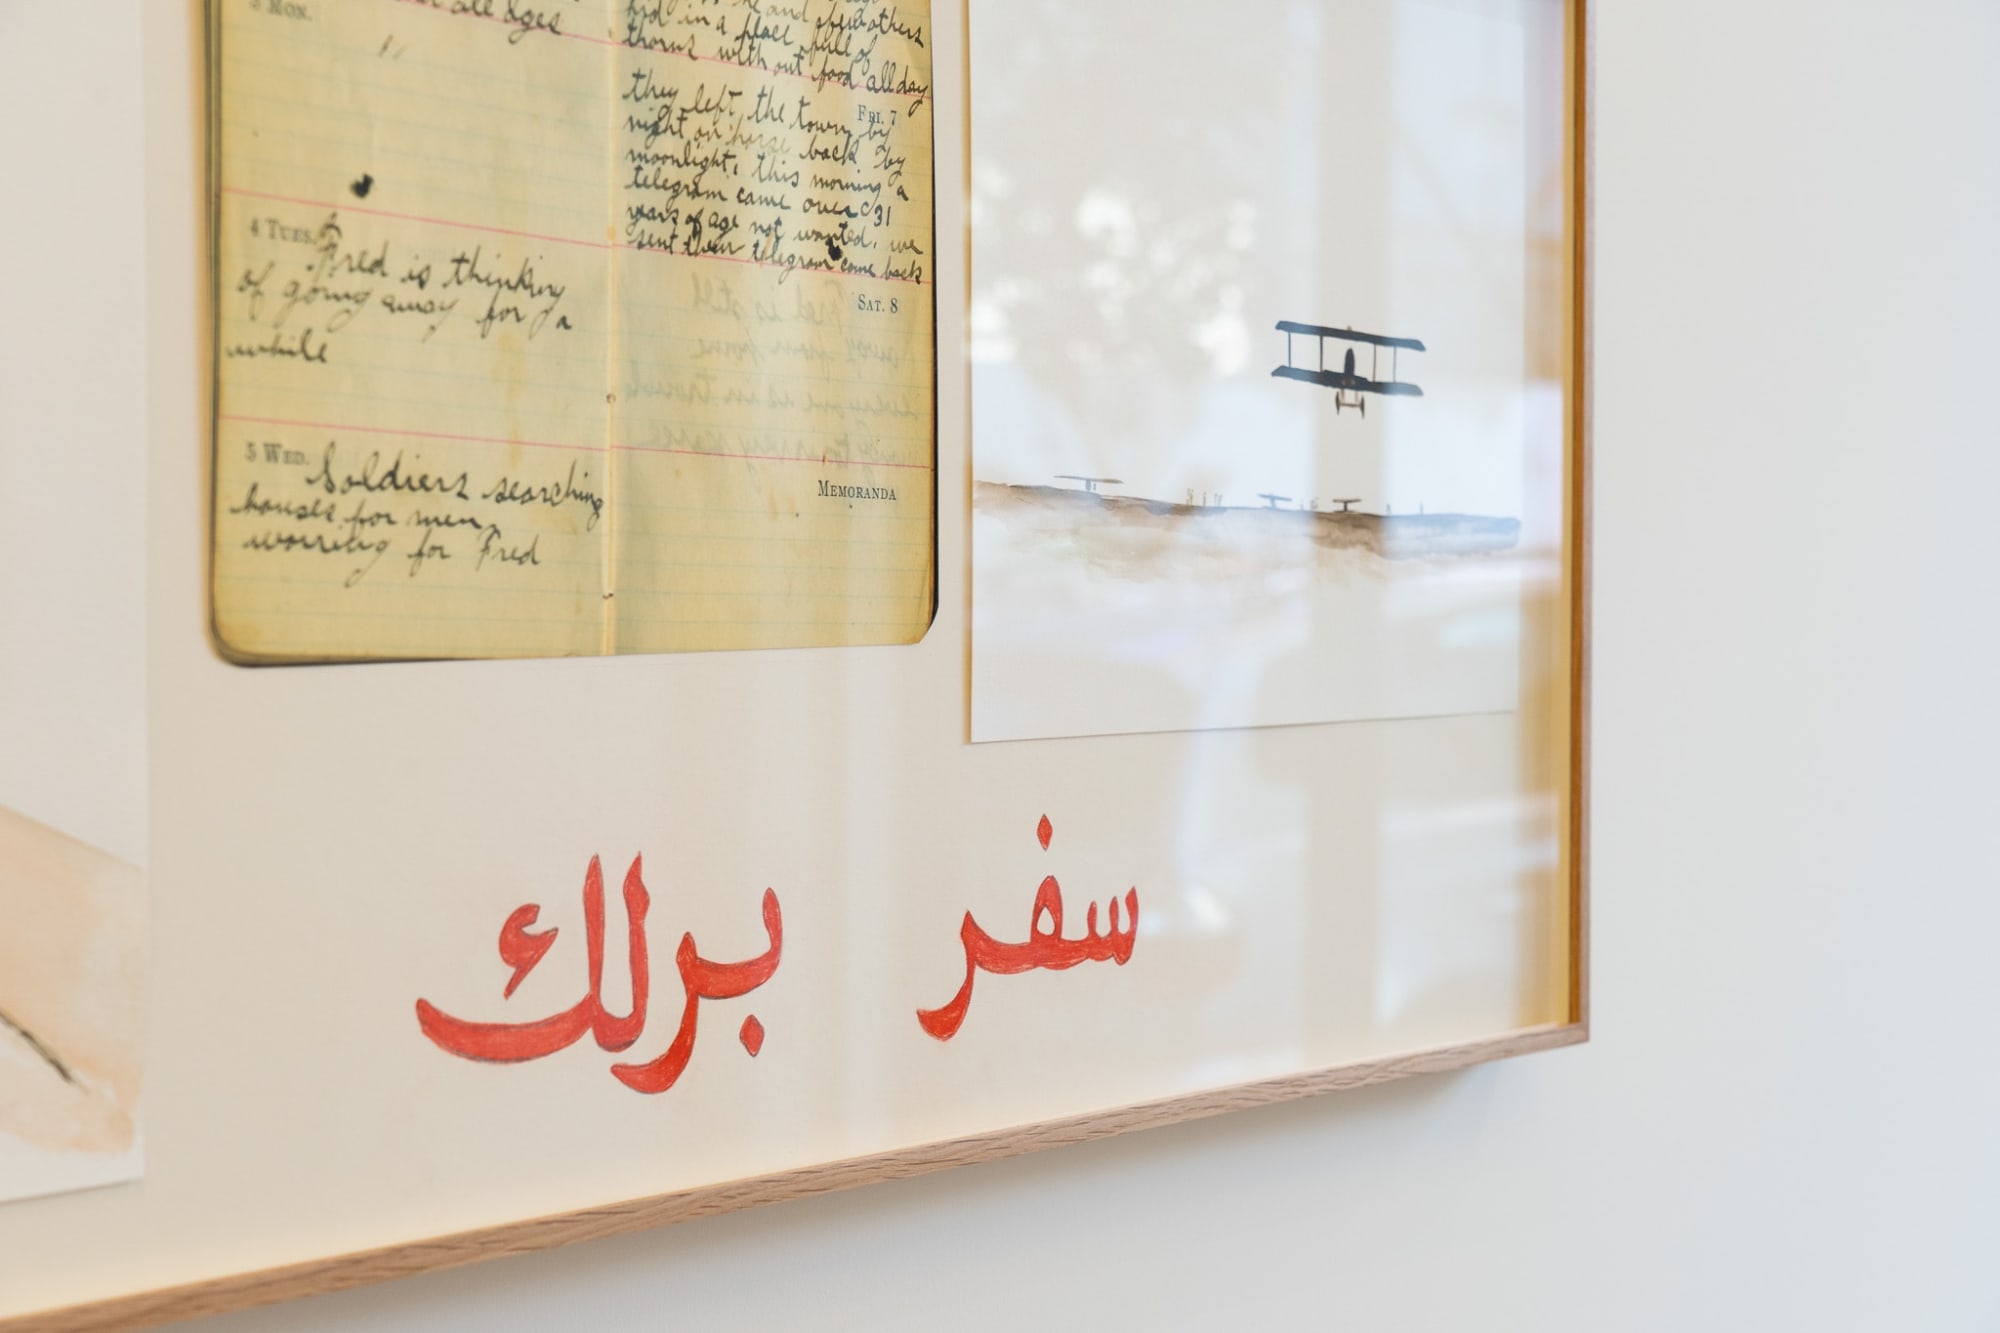 3 Mon.
all ages
4 Tues.
Fred is thinking
of going away for a
while
5 Wed.
Soldiers searching
houses for men,
worring for Fred
he and fiew others
hid in a place full of
thorns with out food all day
Fri. 7
they left the town by
night on horse back by
moonlight, this morning a
telegram came over 31
years of age not wanted. we
sent them telegram come back
Sat. 8
Memoranda
سفر برلك